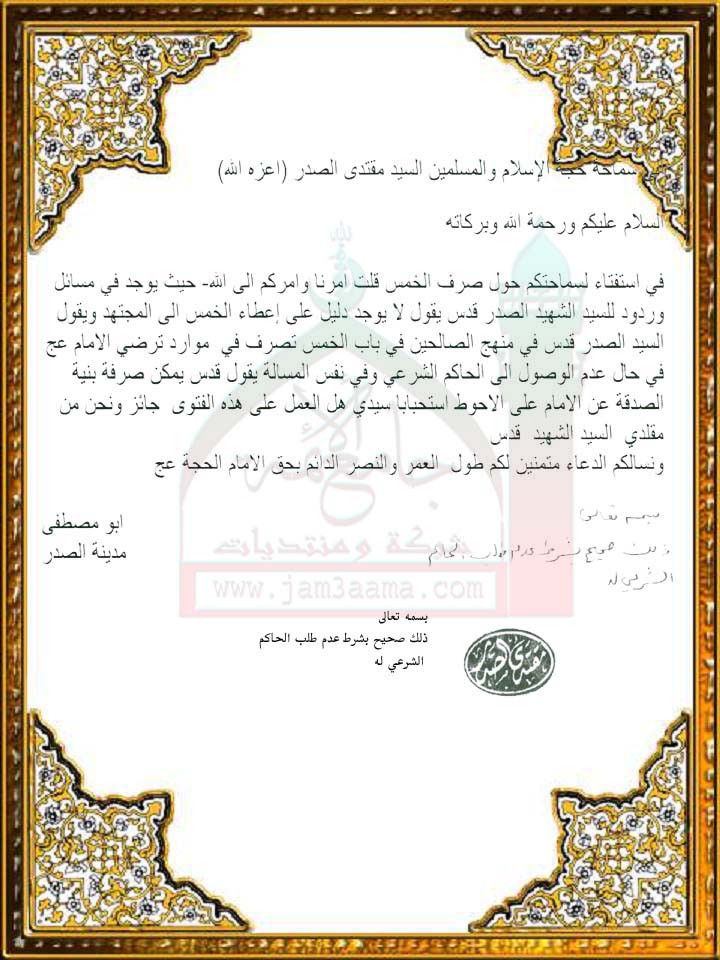 سماحة حجة الإسلام والمسلمين السيد مقتدى الصدر (اعزه الله)
السلام عليكم ورحمة الله وبركاته
في استفتاء لسماحتكم حول صرف الخمس قلت امرنا وامركم الى الله- حيث يوجد في مسائل
وردود للسيد الشهيد الصدر قدس يقول لا يوجد دليل على إعطاء الخمس الى المجتهد ويقول
السيد الصدر قدس في منهج الصالحين في باب الخمس تصرف في موارد ترضي الامام عج
في حال عدم الوصول الى الحاكم الشرعي وفي نفس المسالة يقول قدس يمكن صرفة بنية
الصدقة عن الامام على الاحوط استحبابا سيدي هل العمل على هذه الفتوى جائز ونحن من
مقلدي السيد الشهيد قدس
ونسالكم الدعاء متمنين لكم طول العمر والنصر الدائم بحق الامام الحجة عج
ابو مصطفى
مدينة الصدر
بسمه تعالى
ذلك صحيح بشرط عدم طلب الحاكم
الشرعي له
جامع الأئمة
شبكة ومنتديات
www.jam3aama.com
بسمه تعالى
ذلك صحيح بشرط عدم طلب الحاكم
الشرعي له
مقتدى الصدر